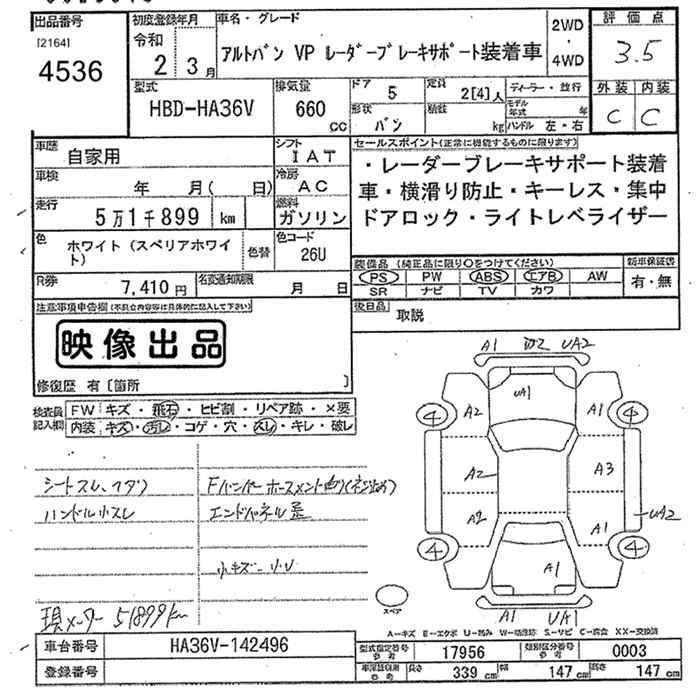 出品番号 初度登録年月 車名・グレード 2WD・4WD 評価点
[2164] 令和 アルトバン VP レーダーブレーキサポート装着車 3.5
4536 2 3月
外装 内装
型式 排気量 ドア 5 定員 2[4]人 ディーラー・並行
HBD-HA36V 660 CC 形状 バン 積載 kg モデル年式 年 C C
ハンドル 左・右
車歴 自家用 シフト IAT セールスポイント(正常に機能するものに限ります)
車検 年 月( 日) 冷房 AC ・レーダーブレーキサポート装着
走行 5万1千899 km 燃料 ガソリン 車・横滑り防止・キーレス・集中
ドアロック・ライトレベライザー
色 ホワイト(スペリアホワイト) 色替 色コード 26U
装備品 (純正品に限り○をつけてください) 新車保証書
R券 7,410円 名変通知期限 月 日 PS PW ABS エアB AW 有・無
SR ナビ TV カワ
注意事項申告欄(不具合内容等は具体的に記入して下さい) 後日品 取説
映像出品
修復歴 有〔箇所 〕
検査員記入欄 FW キズ・飛石・ヒビ割・リペア跡・×要
内装 キズ・汚レ・コゲ・穴・スレ・キレ・破レ
A1 W2 UA2
UA1
A2 A1
A2 A3
A2 A1 UA2
A1
A1 UA1
4 4
4 4
スペア
シートスレ、
ハンドル小スレ
エンドパネル
小キズ
現メーター 51899km
A-キズ E-エクボ U-凹み W-補修跡 S-サビ C-腐食 XX-交換済
車台番号 HA36V-142496 型式指定番号 参考 17956 類別区分番号 参考 0003
登録番号 参考 長さ 339 cm 幅 147 cm 高さ 147 cm